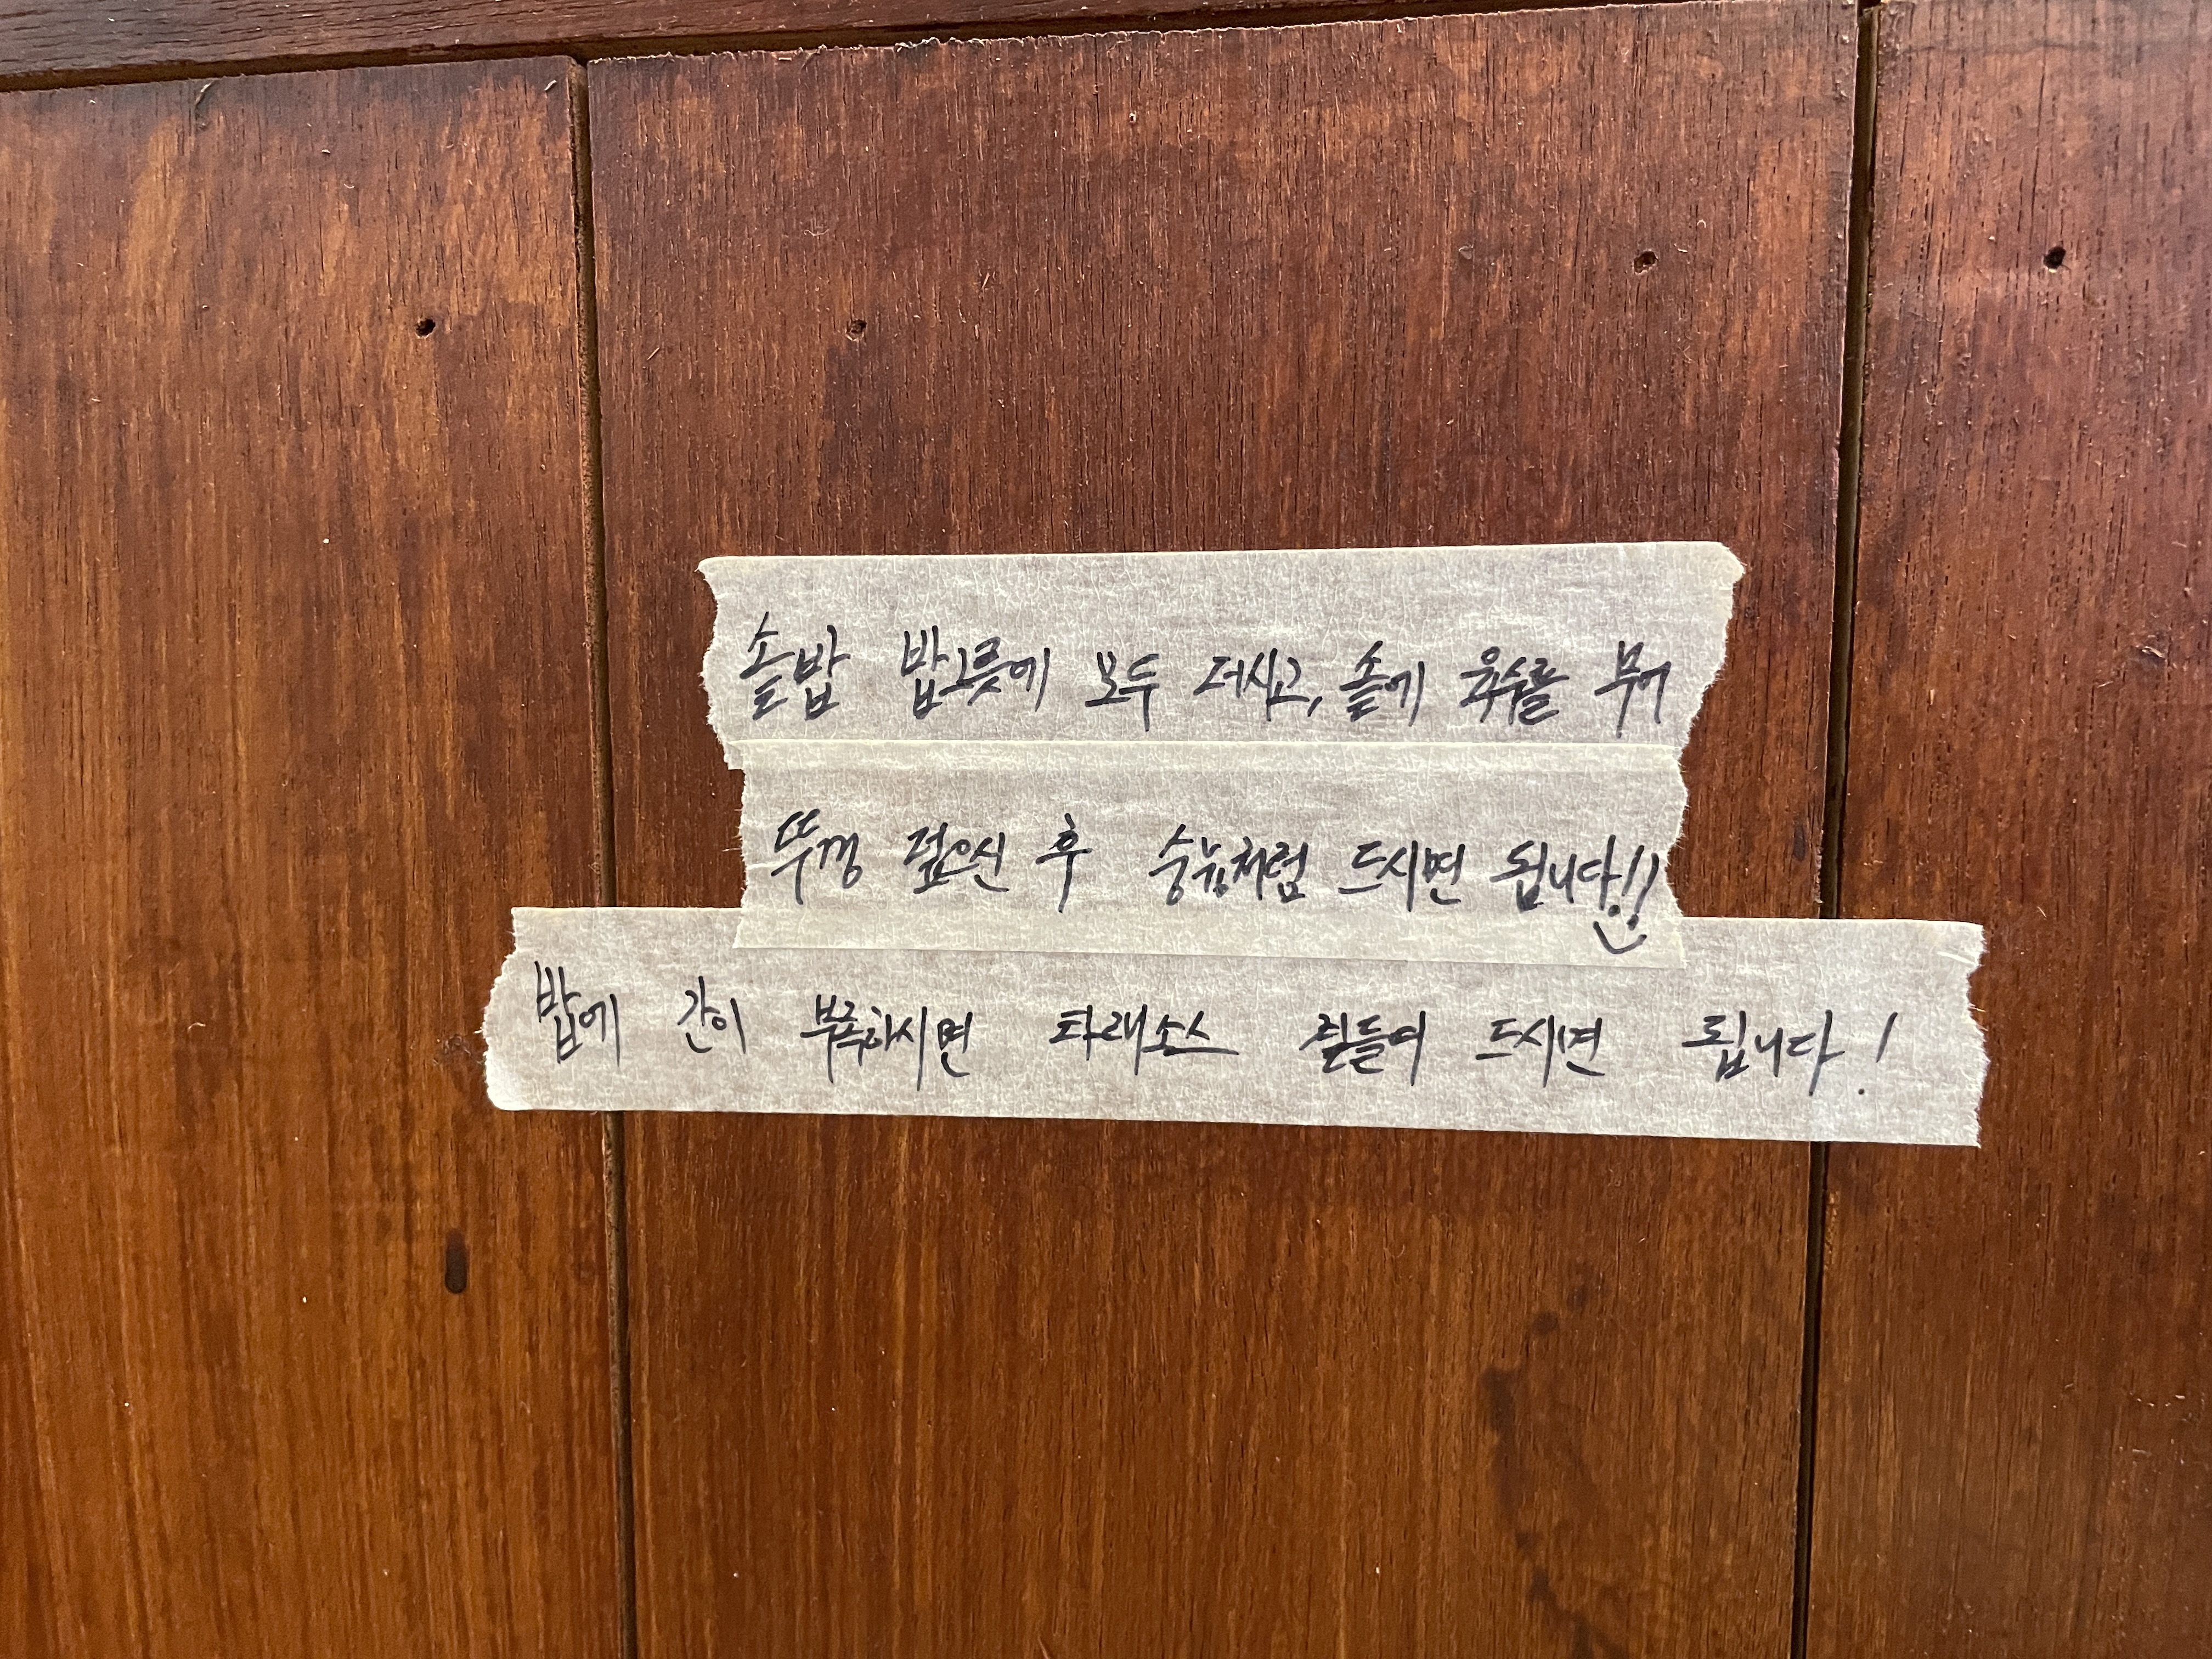 솥밥 밥그릇에 모두 더시고, 솥에 육수를 부어
뚜껑 덮으신 후 숭늉처럼 드시면 됩니다!!
밥에 간이 부족하시면 타래소스 곁들여 드시면 됩니다!